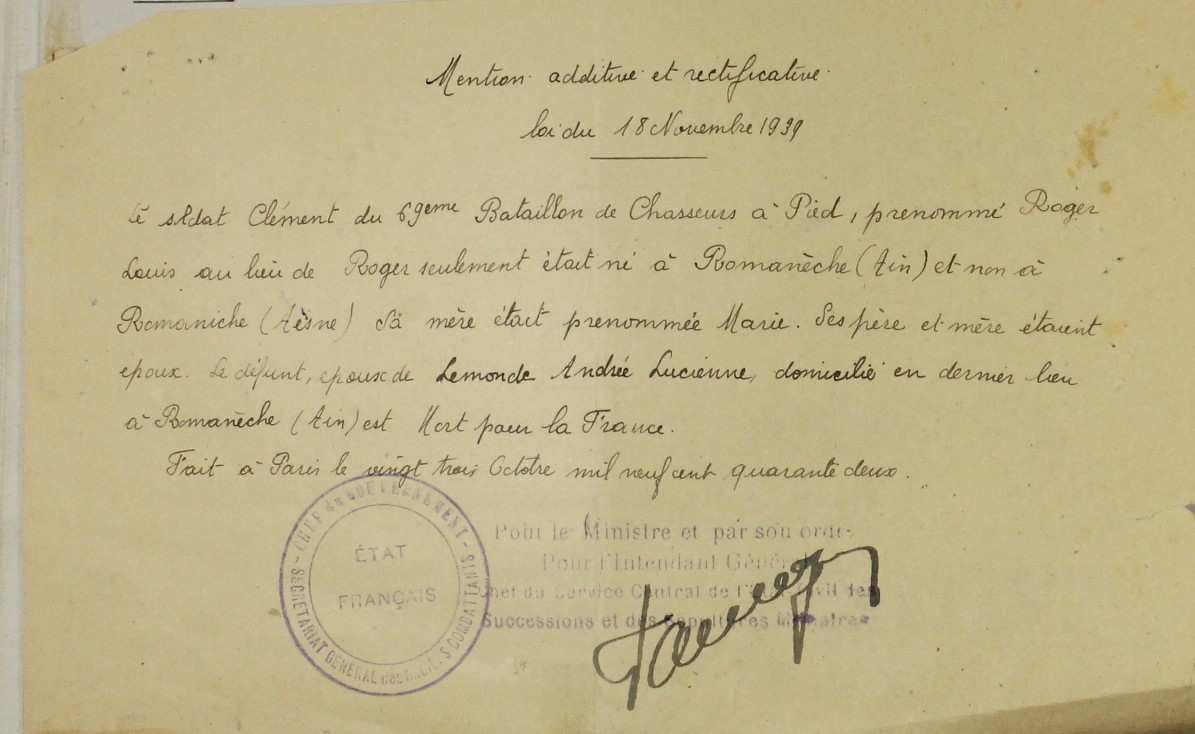 Mention additive et rectificative
loi du 18 Novembre 1939
Le soldat Clément du 69eme Bataillon de Chasseurs à Pied, prenommé Roger
Louis au lieu de Roger seulement était né à Romanèche (Ain) et non à
Romaniche (Aisne) Sa mère était prenommée Marie. Ses père et mère étaient
epoux. Le défunt, epoux de Lemonde Andrée Lucienne, domicilié en dernier lieu
à Romanèche (Ain) est Mort pour la France.
Fait à Paris le vingt trois Octobre mil neuf cent quarante deux.
CHEF du GOUVERNEMENT - SECRÉTARIAT GÉNÉRAL des COMBATTANTS
ÉTAT
FRANÇAIS
Pour le Ministre et par son ordre
Pour l'Intendant Général
Chef du Service Central de l'État Civil des
Successions et des Sépultures Militaires